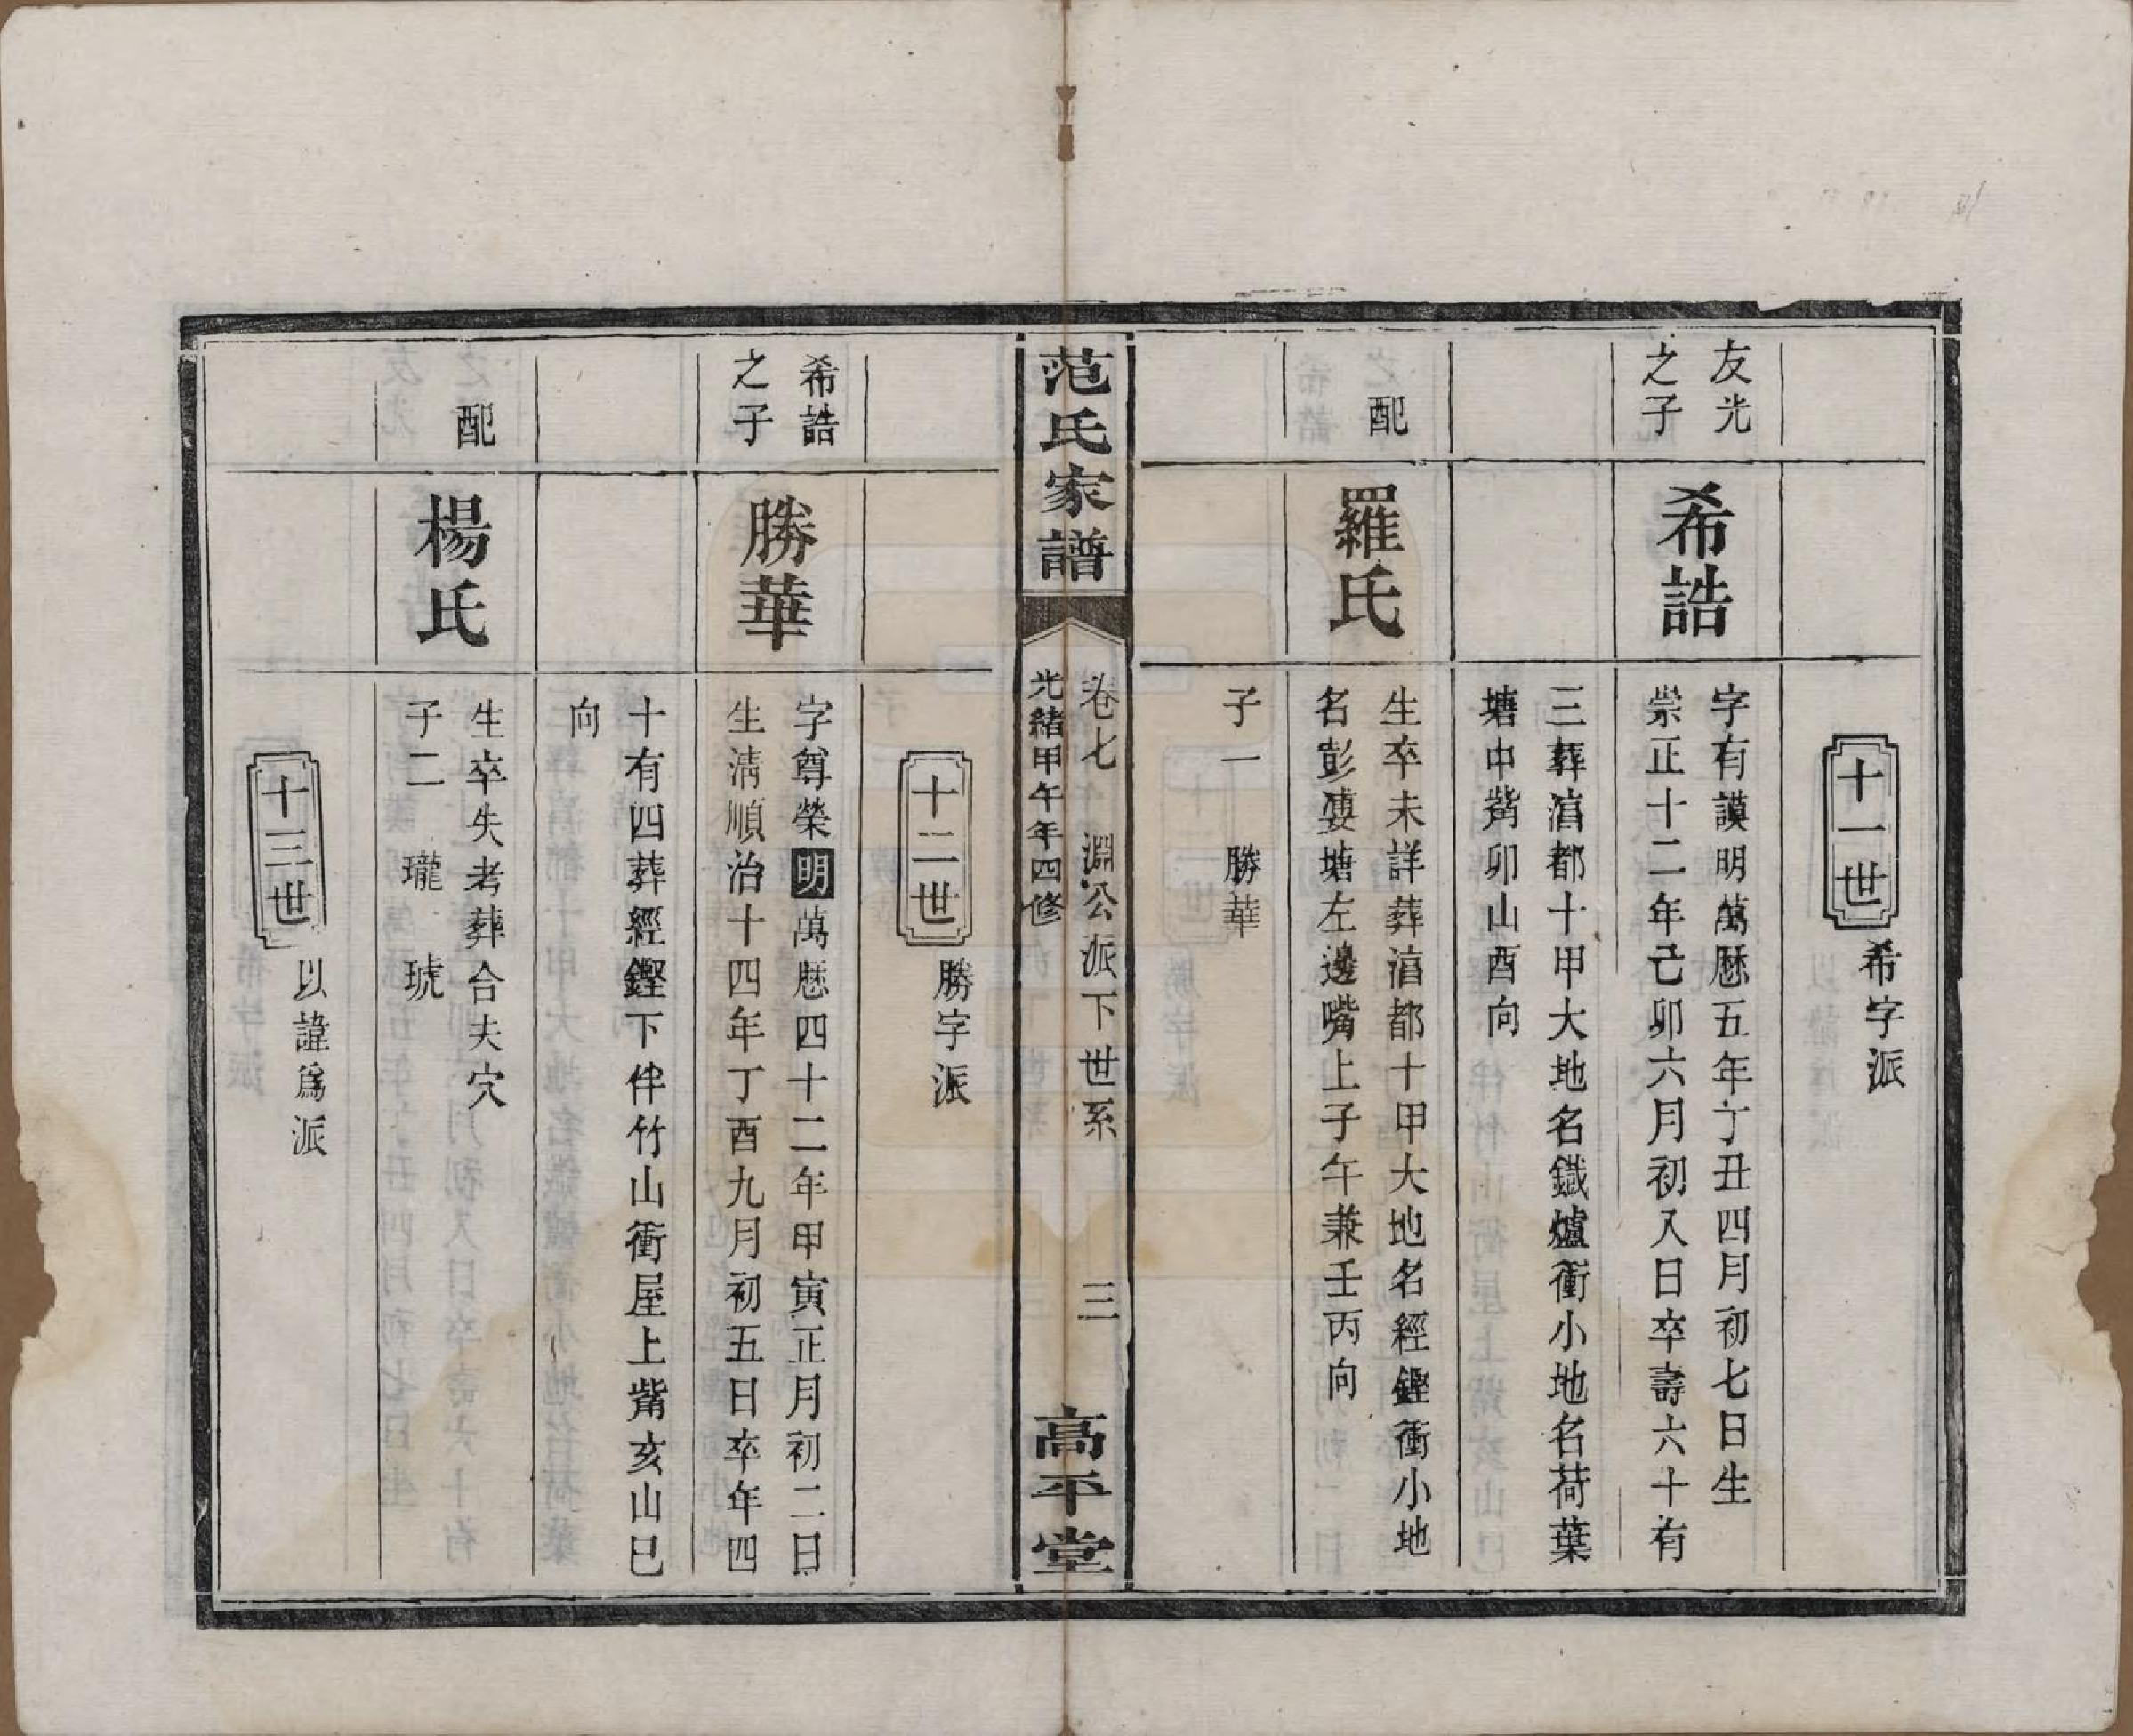 十一世
希字派
友光
之子
希誥
字有謨明萬厯五年丁丑四月初七日生
崇正十二年己卯六月初八日卒壽六十有
三葬湻都十甲大地名鐡爐衝小地名荷葉
塘中觜卯山酉向
配
羅氏
生卒未詳葬湻都十甲大地名經鏗衝小地
名彭婁塘左邊嘴上子午兼壬丙向
子一 勝華
范氏家譜
卷七 淵公派下世系 三
光緒甲午年四修
高平堂
十二世
勝字派
希誥
之子
勝華
字尊榮明萬厯四十二年甲寅正月初二日
生淸順治十四年丁酉九月初五日卒年四
十有四葬經鏗下伴竹山衝屋上觜亥山巳
向
配
楊氏
生卒失考葬合夫穴
子二 瓏 琥
十三世
以諱爲派